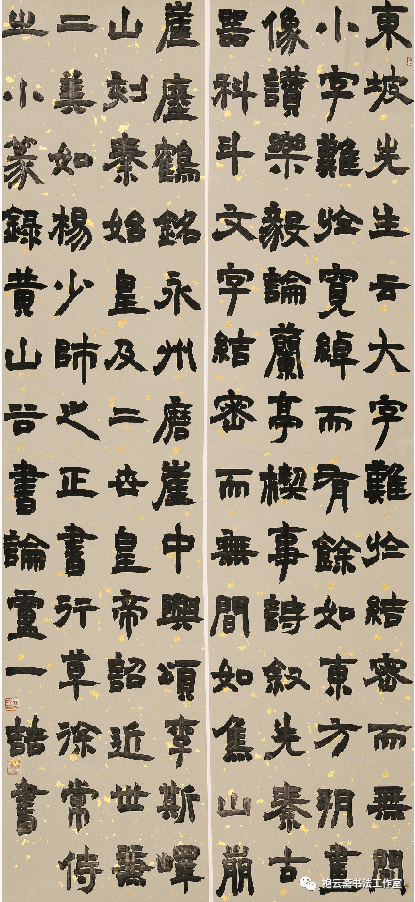 東坡先生云大字難於結密而無間
小字難於寬綽而有餘如東方朔畫
像讚樂毅論蘭亭禊事詩叙先秦古
器科斗文字結密而無間如焦山崩
崖瘞鶴銘永州磨崖中興頌李斯嶧
山刻秦始皇及二世皇帝詔近世兼
二美如楊少師之正書行草徐常侍
之小篆錄黃山谷書論靈一喆書
抱云斋书法工作室